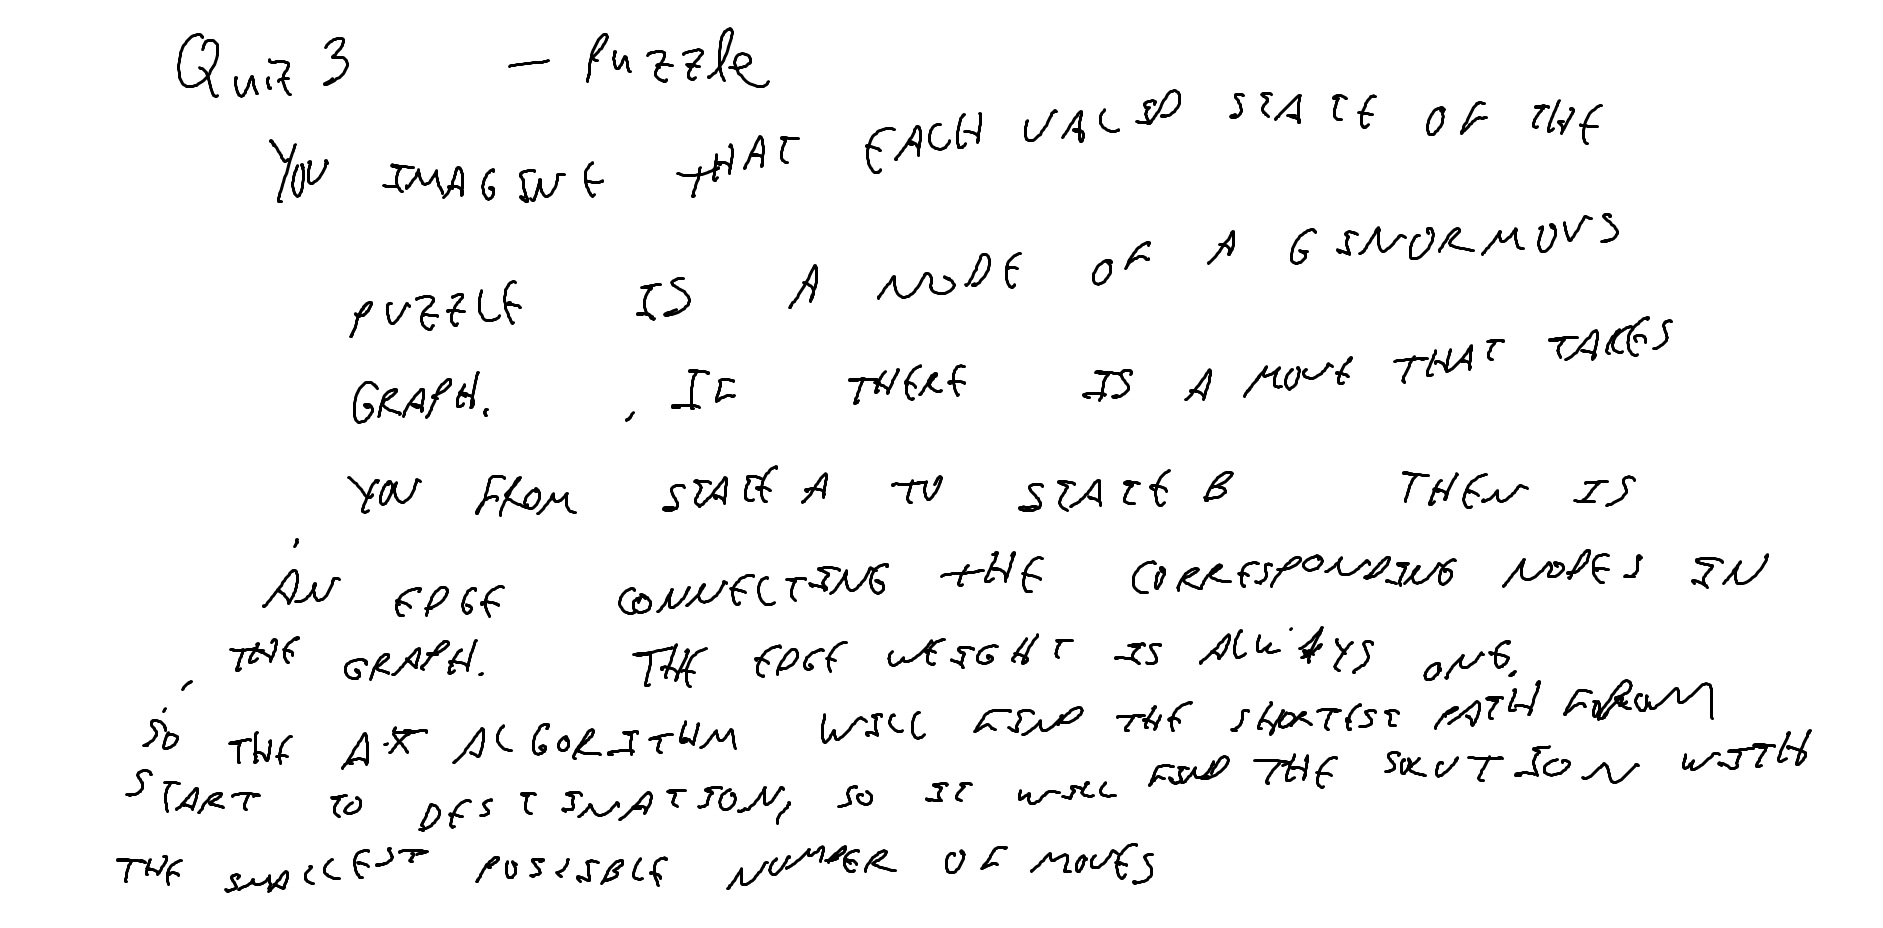 Quiz 3 - Puzzle
YOU IMAGINE THAT EACH VALID STATE OF THE
PUZZLE IS A NODE OF A GINORMOUS
GRAPH. , IF THERE IS A MOVE THAT TAKES
YOU FROM STATE A TO STATE B THEN IS
AN EDGE CONNECTING THE CORRESPONDING NODES IN
THE GRAPH. THE EDGE WEIGHT IS ALWAYS ONE.
SO THE A* ALGORITHM WILL FIND THE SHORTEST PATH FROM
START TO DESTINATION, SO IT WILL FIND THE SOLUTION WITH
THE SMALLEST POSSIBLE NUMBER OF MOVES